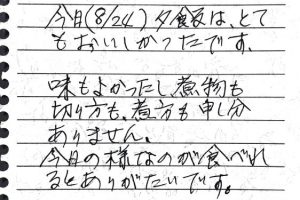 今日(8/24)夕食は、とて
もおいしかったです。
味もよかったし、煮物も
切り方も、煮方も申し分
ありません。
今日の様なのが食べれ
るとありがたいです。